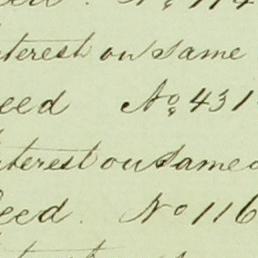 nterest on Same
eed No 431
nterest on Same
eed. No 116